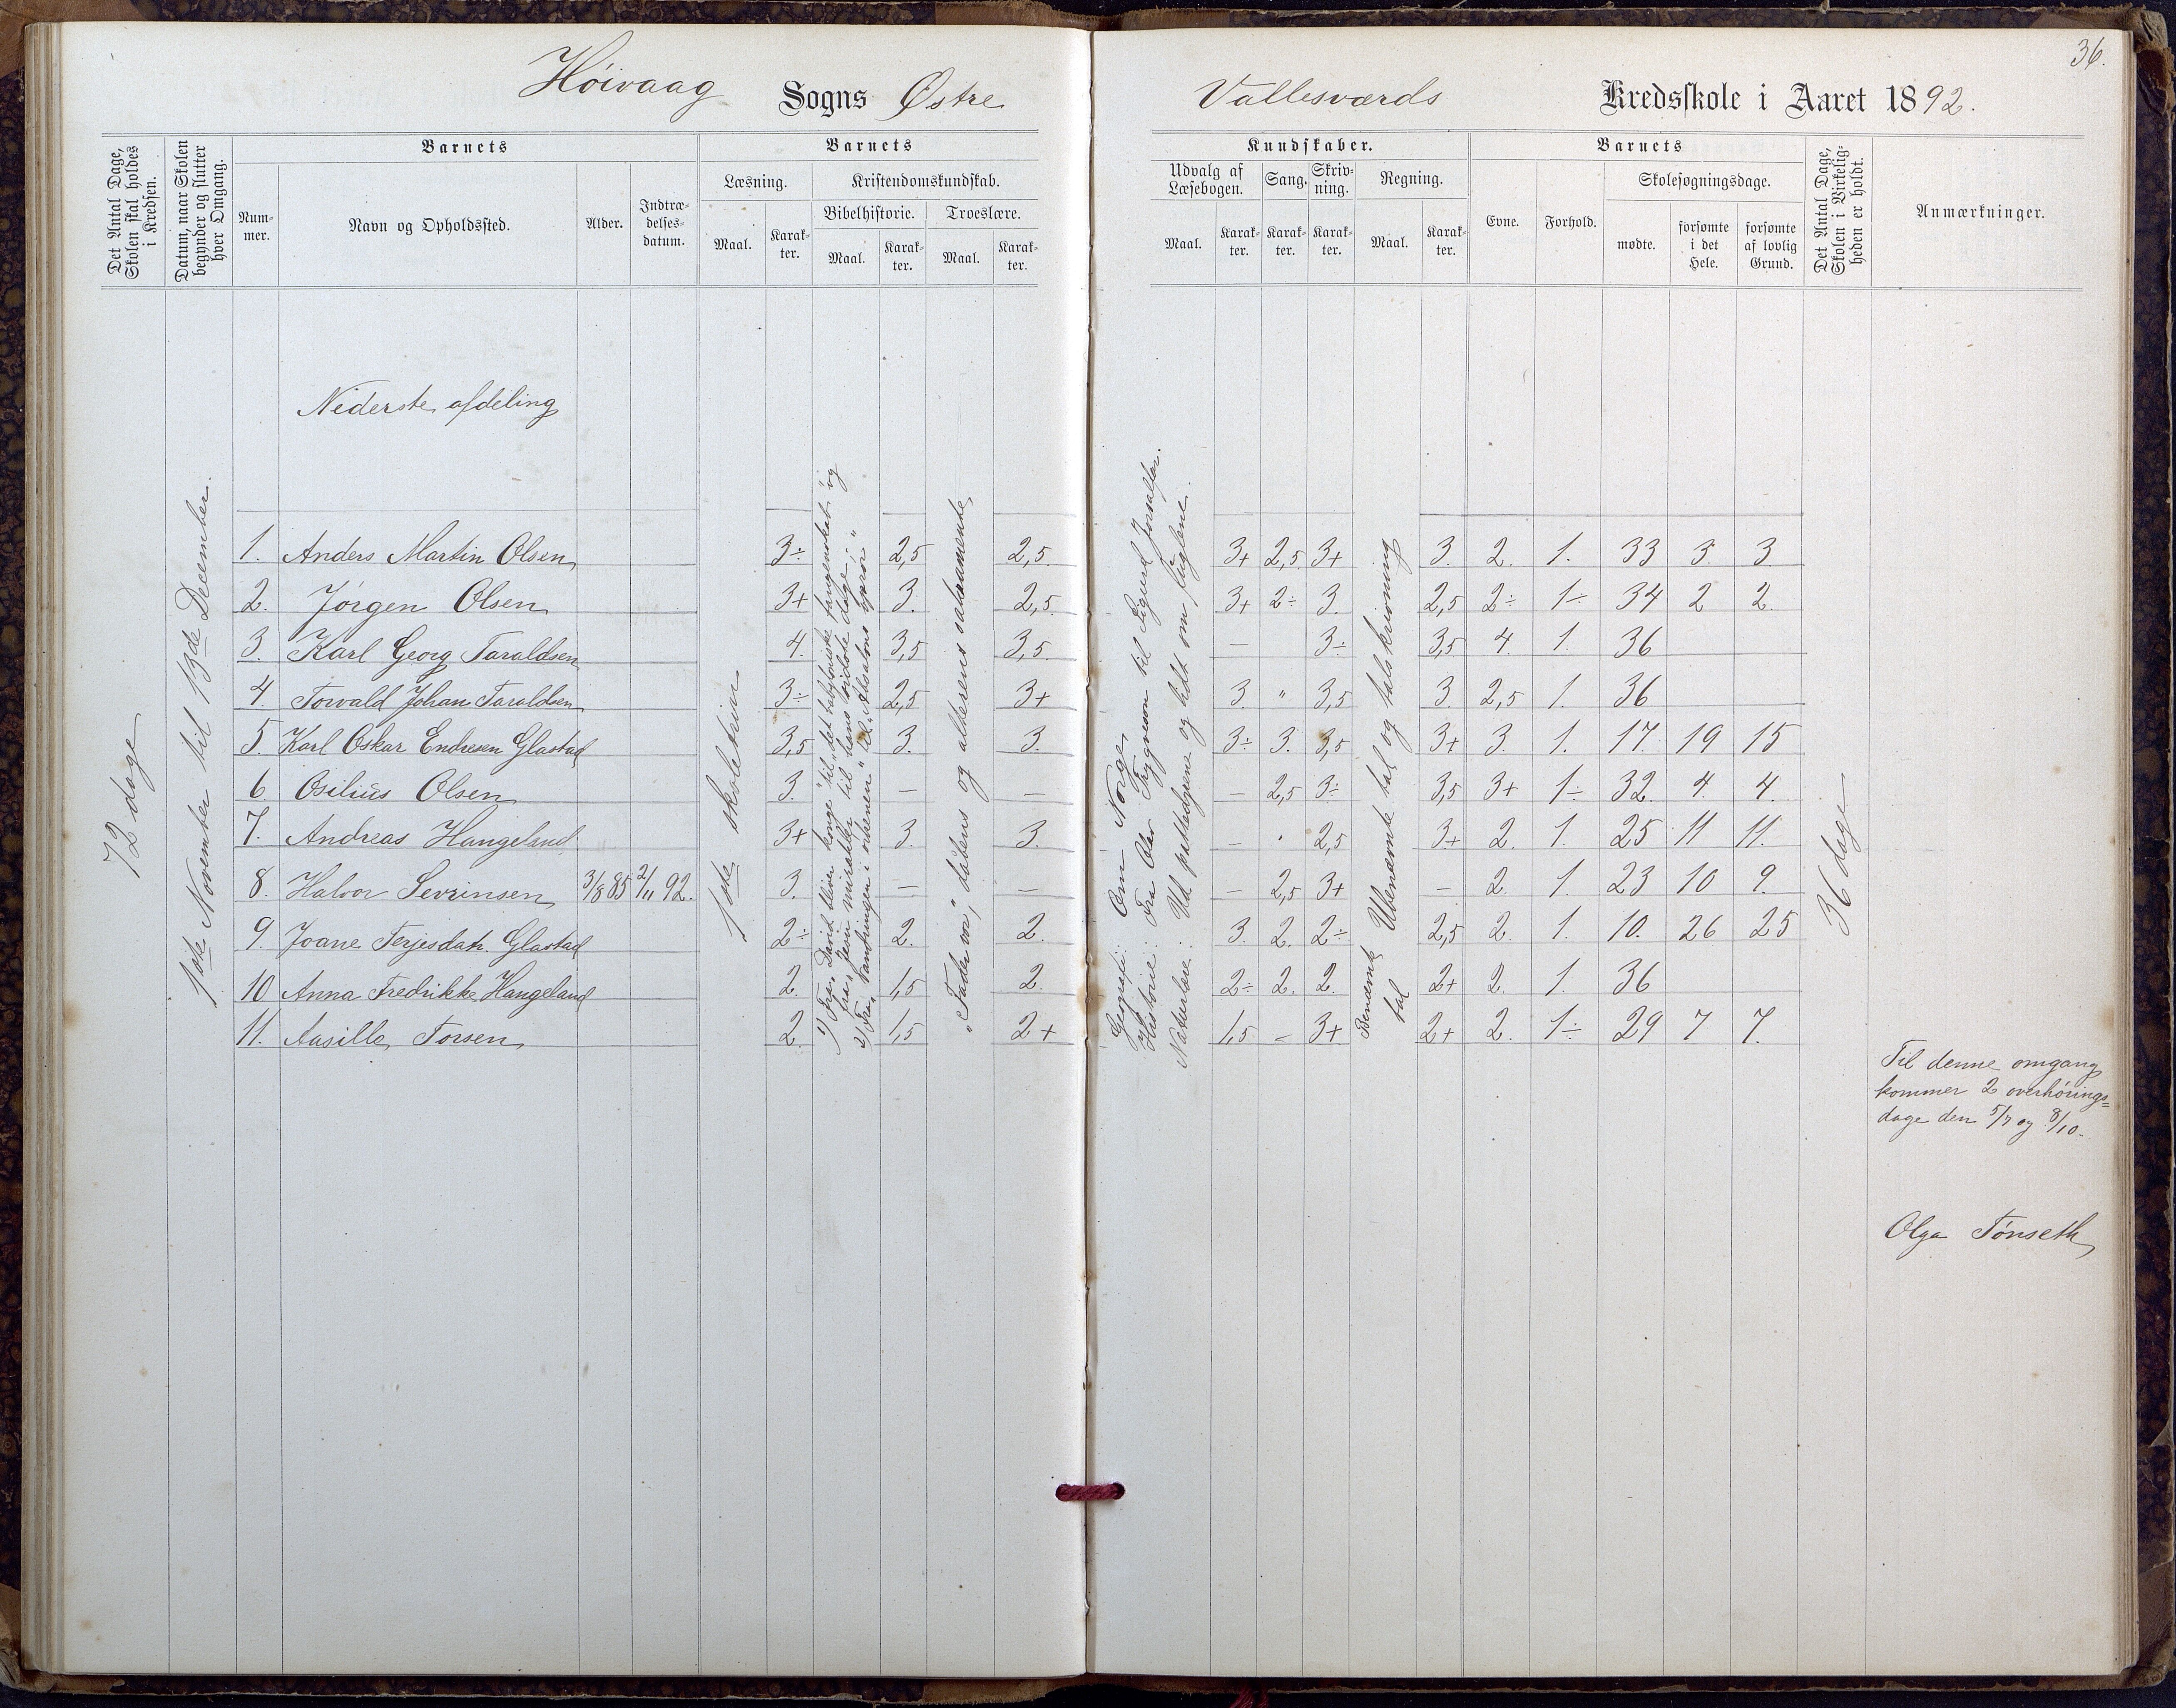 36.
Höivaag Sogns Østre Vallesværds Kredsskole i Aaret 1892.
Det Antal Dage, Skolen skal holdes i Kredsen.
Datum, naar Skolen begynder og slutter hver Omgang.
Barnets
Num-mer.
Navn og Opholdssted.
Alder.
Indtræ-delses-datum.
Barnets
Læsning.
Maal.
Karak-ter.
Kristendomskundskab.
Bibelhistorie.
Maal.
Karak-ter.
Troeslære.
Maal.
Karak-ter.
Kundskaber.
Udvalg af Læsebogen.
Maal.
Karak-ter.
Sang.
Karak-ter.
Skriv-ning.
Karak-ter.
Regning.
Maal.
Karak-ter.
Barnets
Evne.
Forhold.
Skolesøgningsdage.
mødte.
forsømte i det Hele.
forsømte af lovlig Grund.
Det Antal Dage, Skolen i Virkelig-heden er holdt.
Anmærkninger.
Nederste afdeling
72 dage
1ste November til 13de December.
1ste skoletrin
1) Fra "David bliver konge" til "det babyloniske fangenskab" og
fra "Jesu mirakler" til "hans sidste dage";
2) Fra "vandringen i ørkenen" til "Absalons oprør"
"Fader vor", dåbens og alterens sakramente
Geografi: Om Norge
Historie: Fra Olav Trygveson til Sigurd Jorsalfar.
Naturlære: Ud pattedyrene og lidt om fuglene.
Benævnte tal
Ubenævnte tal og talskrivning
36 dage
1. Anders Martin Olsen 3÷ 2,5 2,5 3+ 2,5 3+ 3. 2. 1. 33 3 3
2. Jörgen Olsen 3+ 3. 2,5 3+ 2÷ 3. 2,5 2÷ 1÷ 34 2 2
3. Karl Georg Taraldsen 4. 3,5 3,5 — 3÷ 3,5 4. 1. 36
4. Torvald Johan Taraldsen 3÷ 2,5 3+ 3. " 3,5 3. 2,5 1. 36
5. Karl Oskar Endresen Glastad 3,5 3. 3. 3÷ 3. 3,5 3+ 3. 1. 17 19 15
6 Osilius Olsen 3. — — — 2,5 3÷ 3,5 3+ 1÷ 32. 4. 4.
7. Andreas Hangeland 3+ 3. 3. — 2,5 3+ 2. 1. 25 11 11.
8. Halvor Sevrinsen 3/8 85 2/11 92. 3. — — — 2,5 3+ — 2. 1. 23 10 9.
9. Joane Terjesdatr. Glastad 2÷ 2. 2. 3. 2. 2÷ 2,5 2. 1. 10. 26 25
10 Anna Fredrikke Hangeland 2. 1,5 2. 2÷ 2. 2. 2+ 2. 1. 36
11. Aasille Torsen 2. 1,5 2+ 1,5 — 3+ 2+ 2. 1÷ 29 7 7.
Til denne omgang
kommer 2 overhørings=
dage den 5/7 og 8/10.
Olga Tönseth